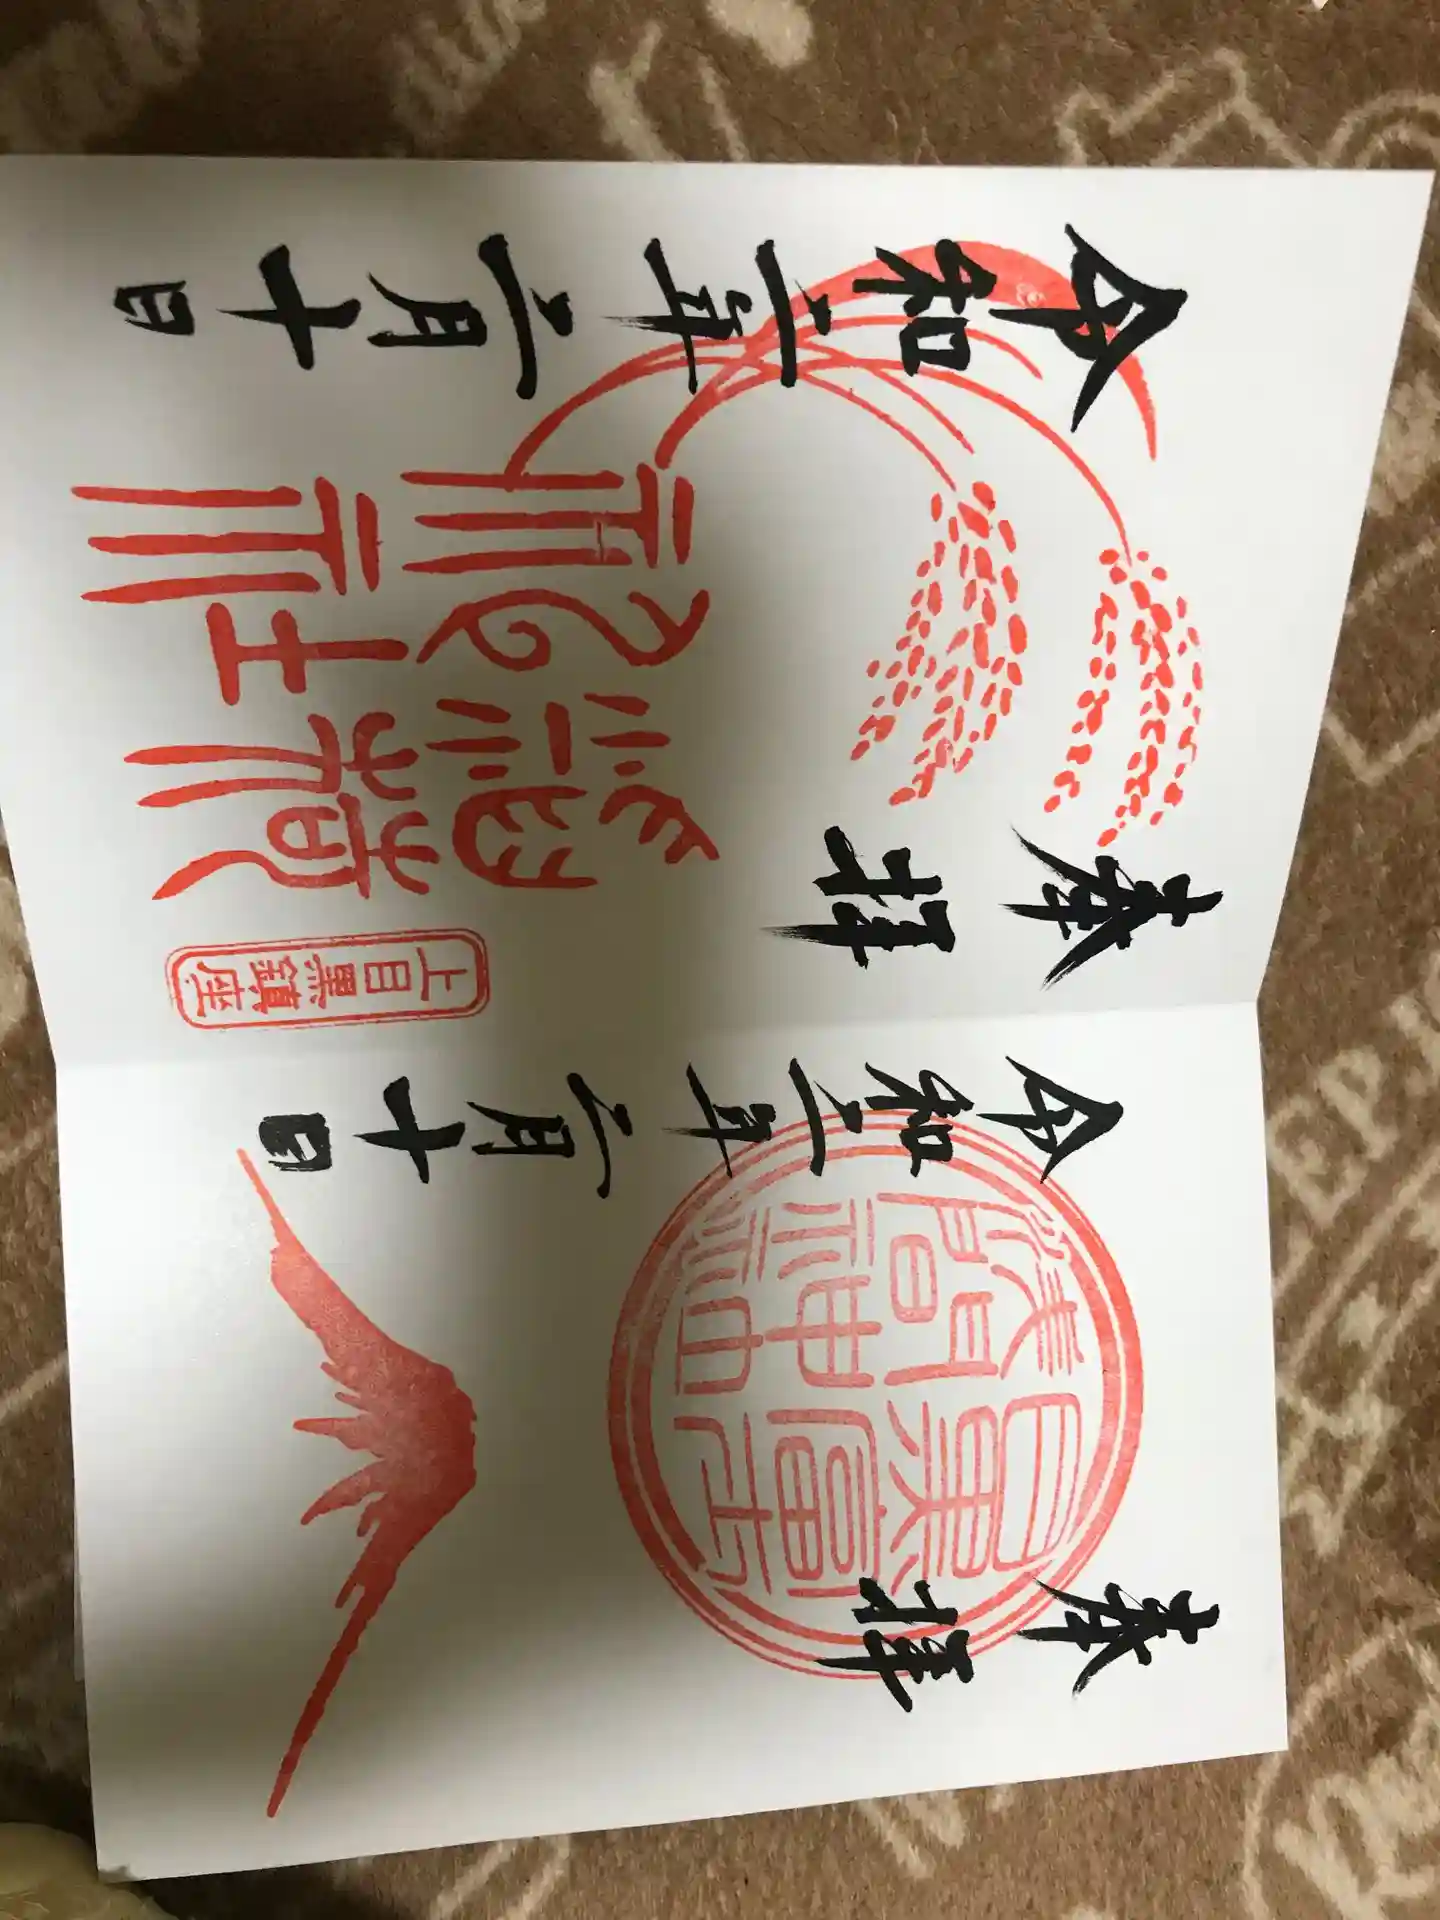 奉拝
目黒富士
浅間神社
令和二年二月十日
奉拝
上目黒鎮座
稲荷
神社
令和二年二月十日